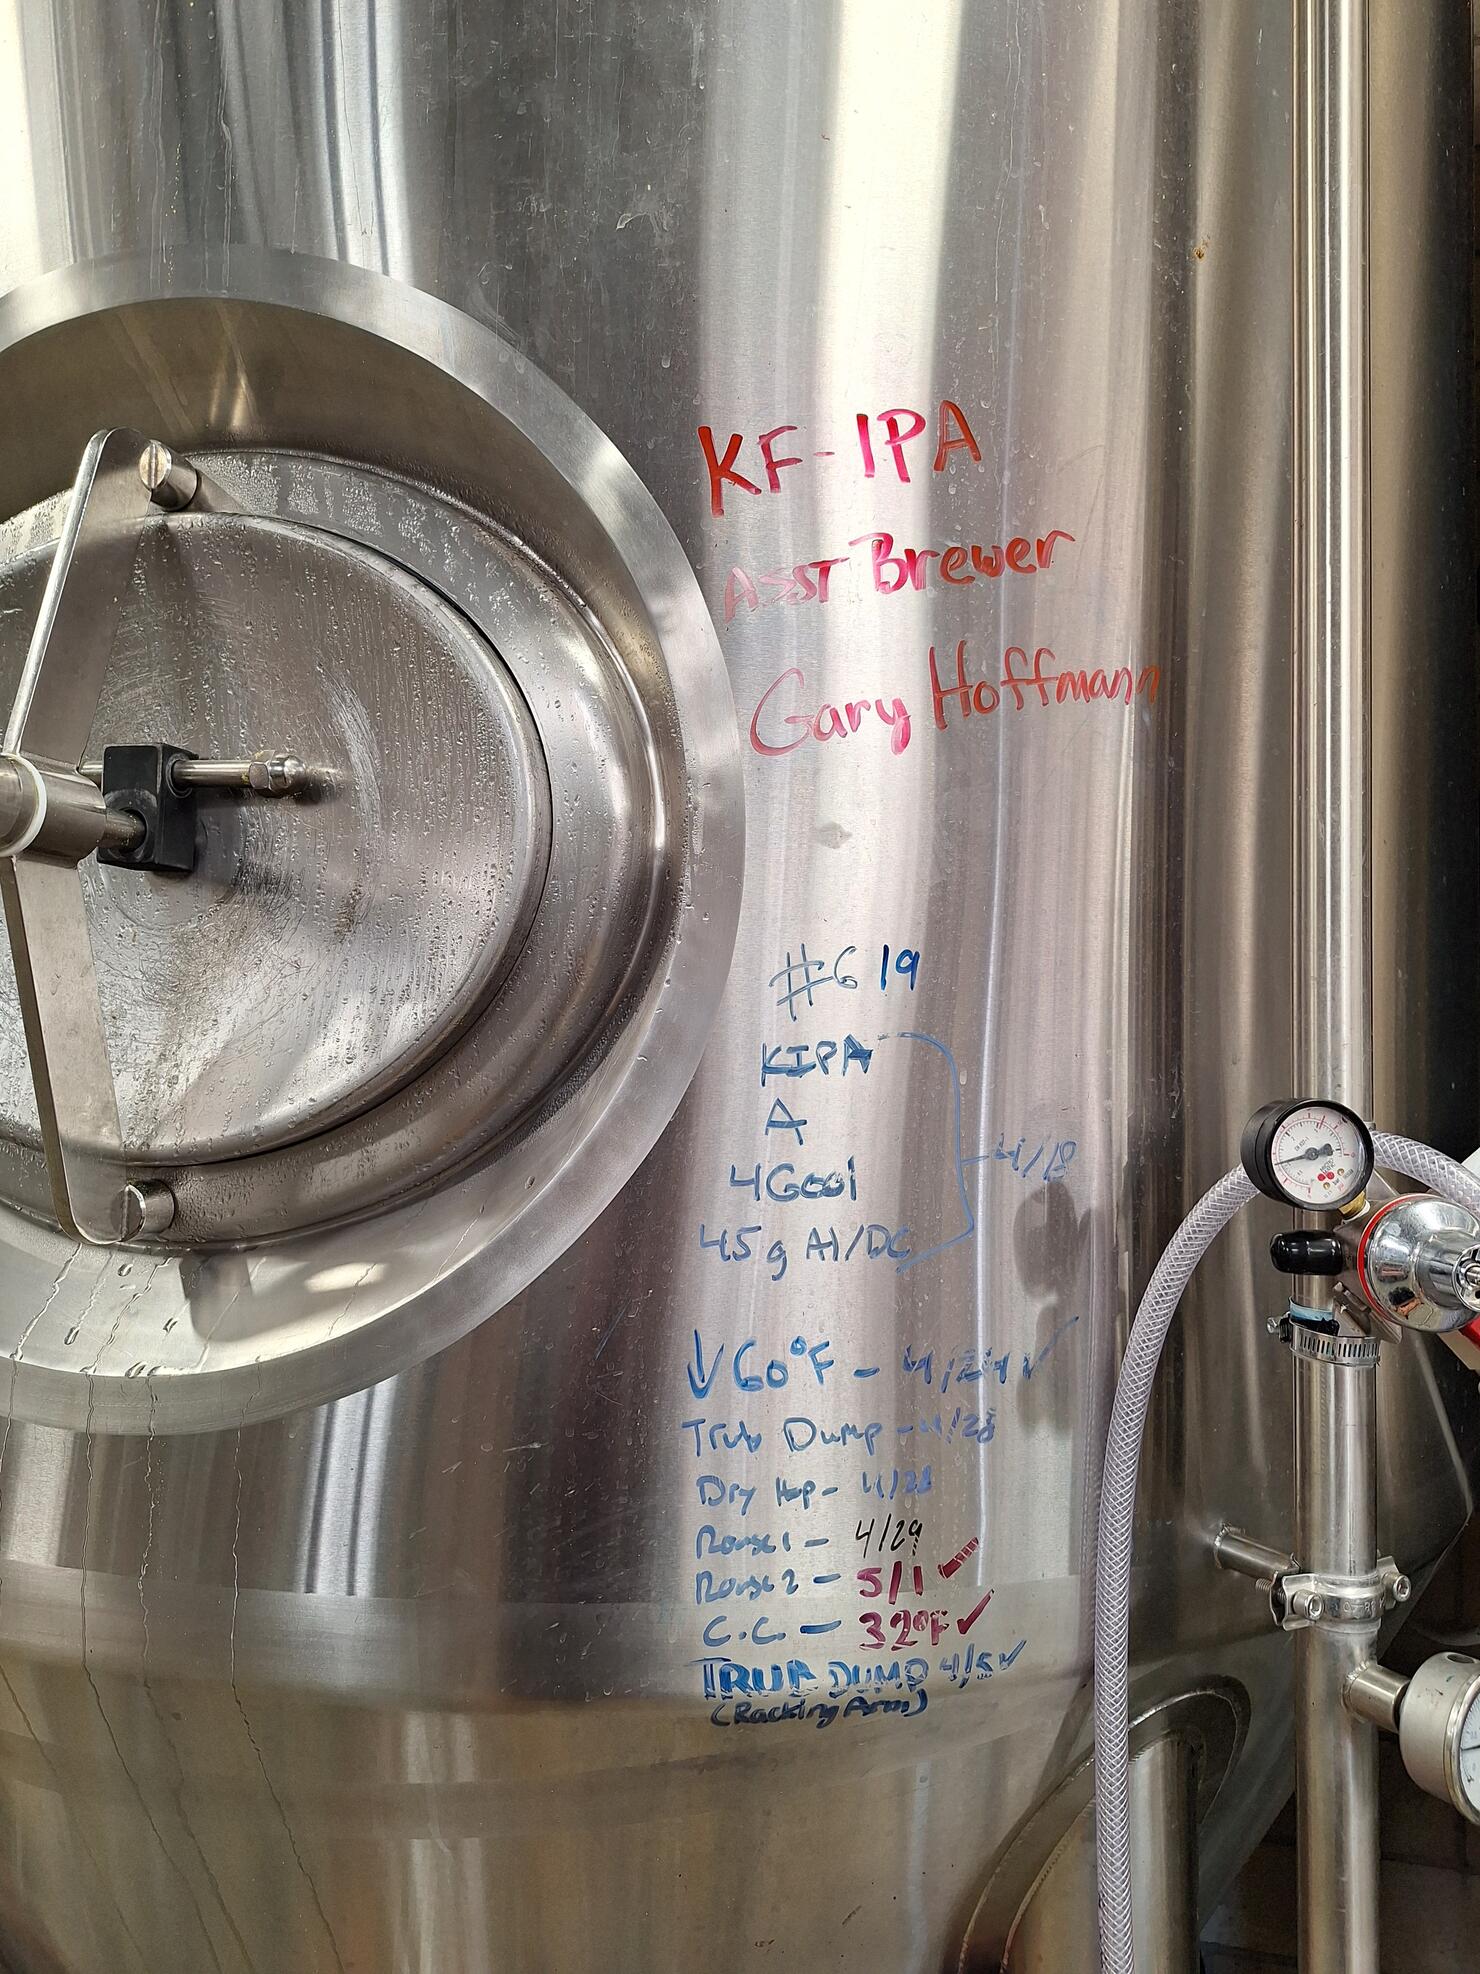 KF-IPA
Asst Brewer
Gary Hoffmann
#619
KIPA
A
4Gool
45g Al/DC
4/18
↓60°F - 4/24 ✓
Trub Dump - 4/28
Dry Hop - 4/28
Rouse 1 - 4/29
Rouse 2 - 5/1 ✓
C.C. - 32°F ✓
TRUB DUMP 4/5 ✓
(Racking Arm)